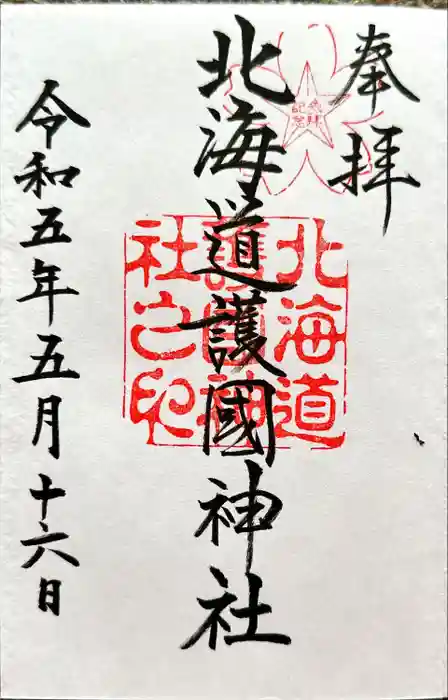 奉拝
参拝
記念
北海道護國神社
北海道
護国神
社之印
令和五年五月十六日